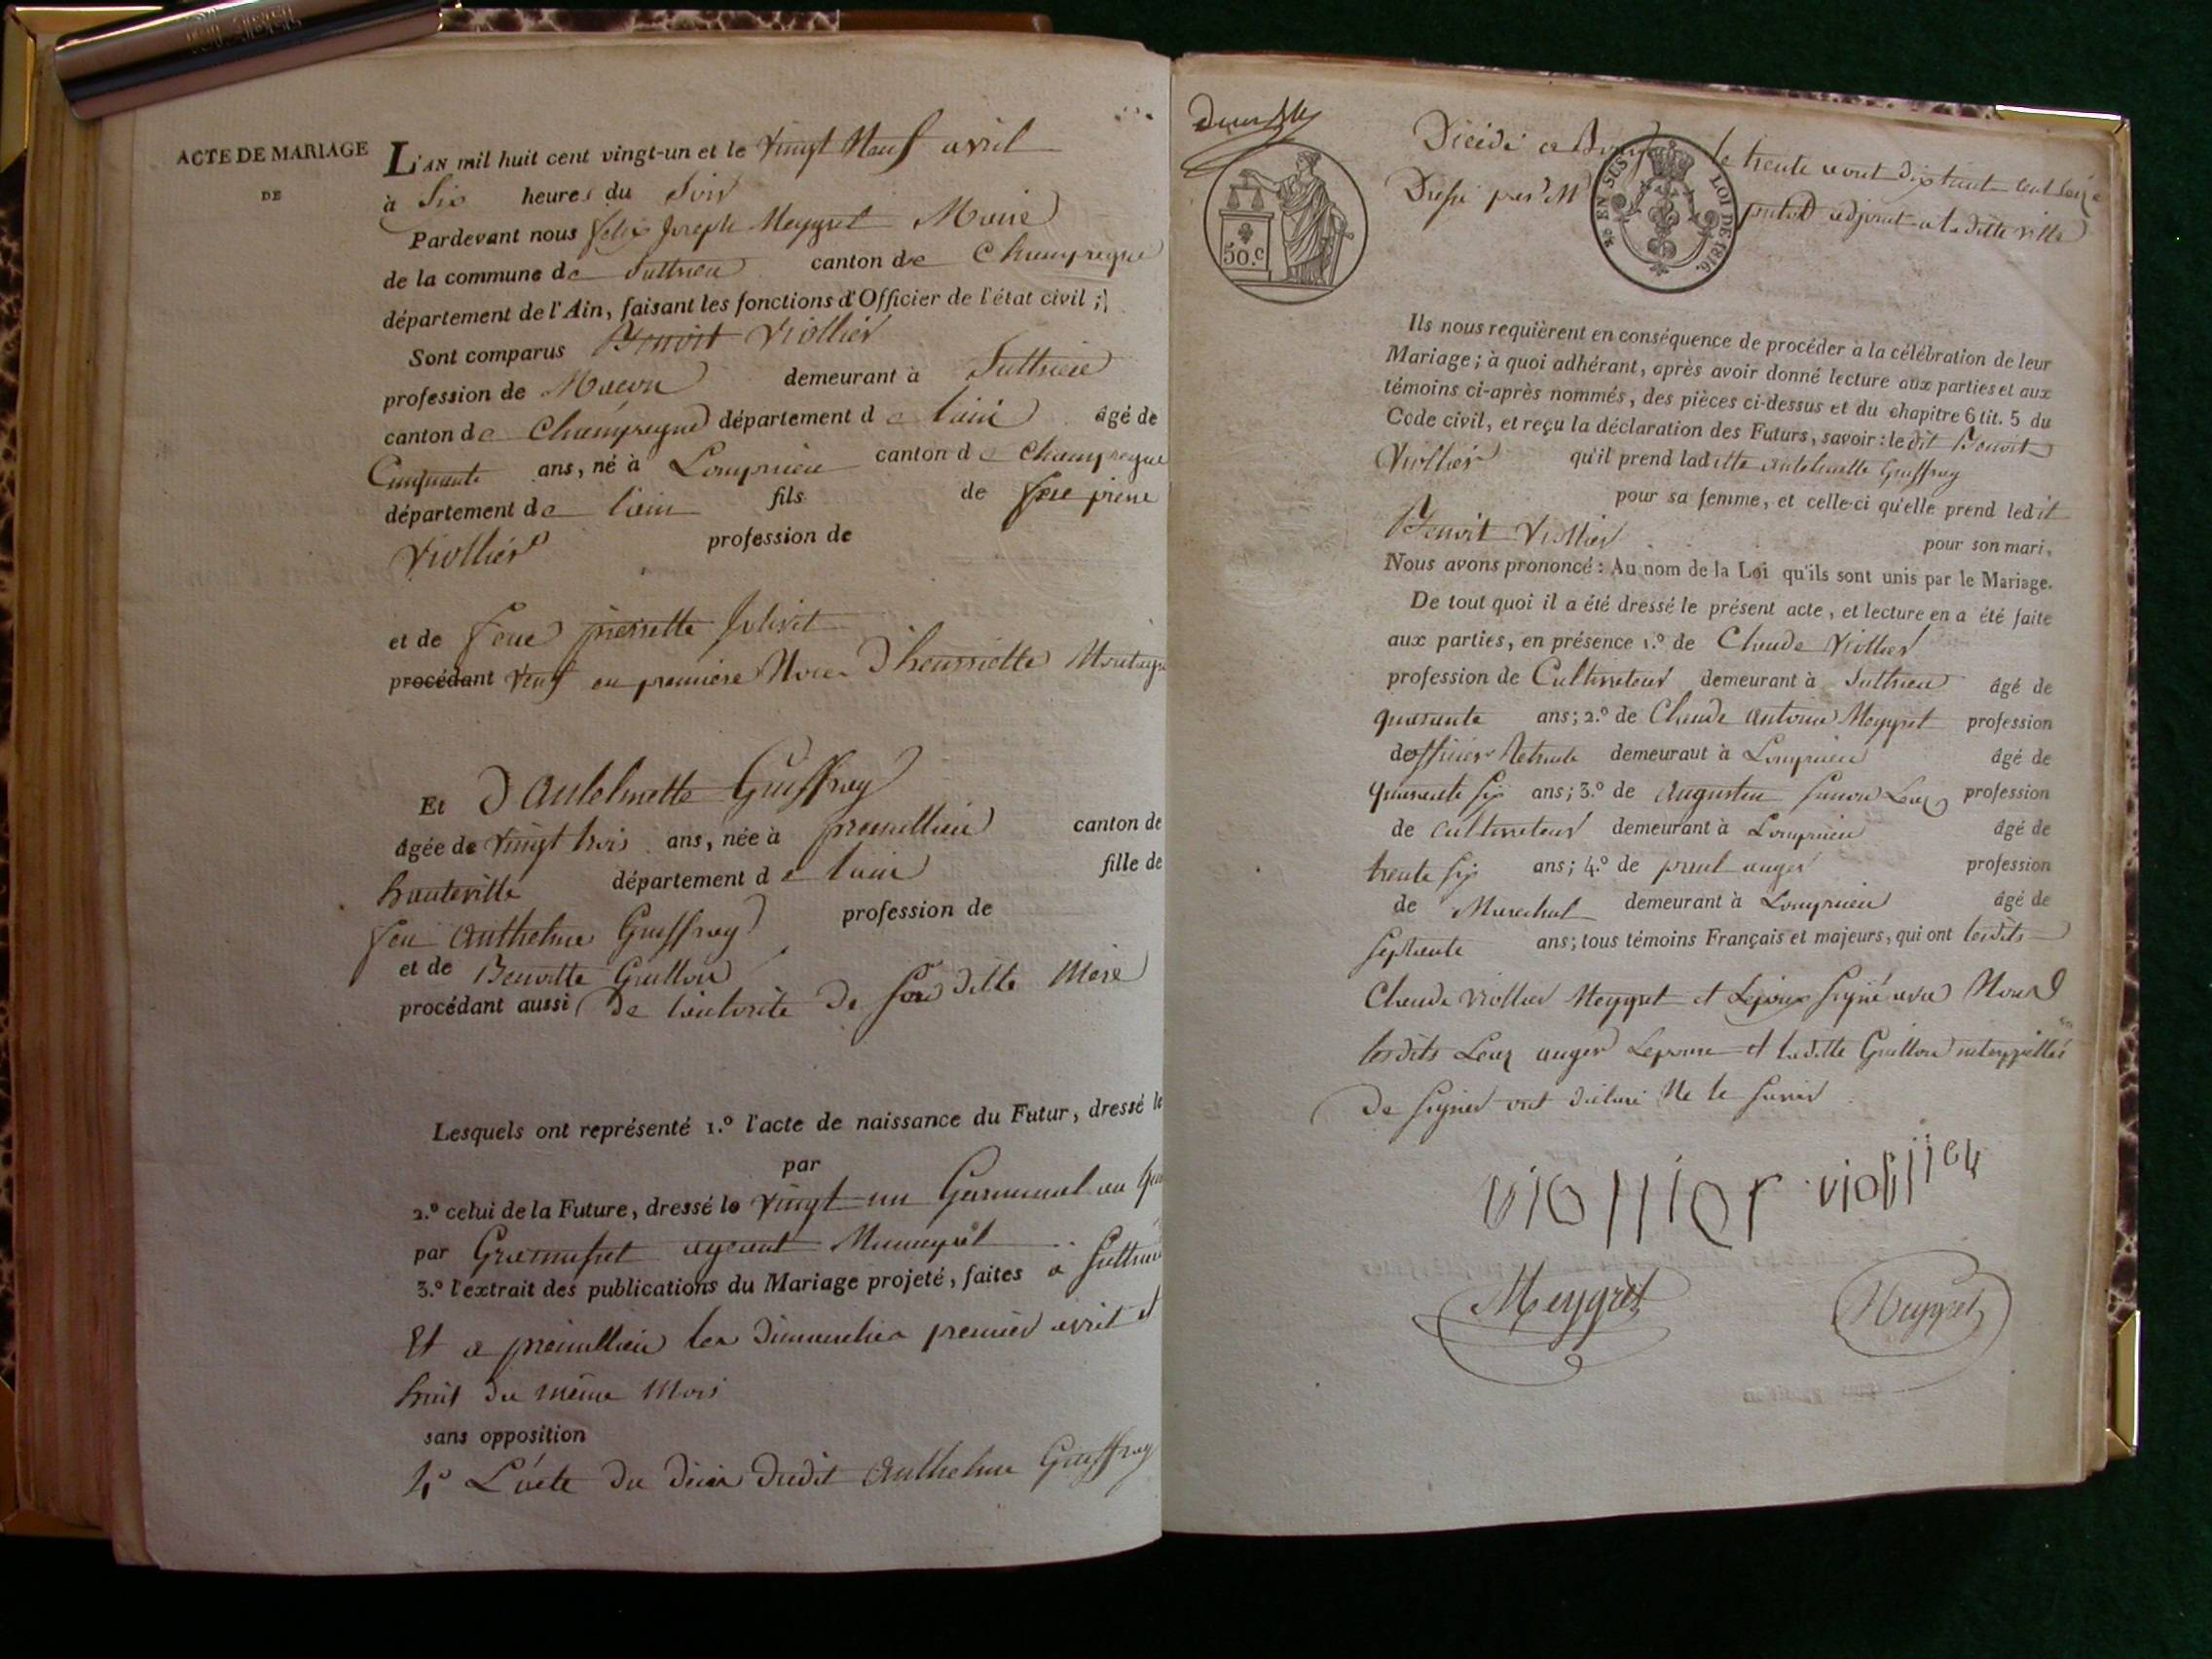 ACTE DE MARIAGE
DE
L'AN mil huit cent vingt-un et le vingt Neuf avril
à Six heures du Soir
Pardevant nous felix Joseph Meygret Maire
de la commune de Suttrieu canton de Champagne
département de l'Ain, faisant les fonctions d'Officier de l'état civil ;
Sont comparus Benoit Viollier
profession de Macon demeurant à Suttrieu
canton de Champagne département de lain âgé de
Cinquante ans, né à Lompnieu canton de Champagne
département de lain fils de feu pierre
Viollier profession de
et de feue pierrette Jolivet
procédant Veuf en premiere Noces D'henriette
Et D'antelmette Guiffray
âgée de vingt trois ans, née à premillieu canton de
hauteville département de lain fille de
feu Anthelme Guiffray profession de
et de Benoitte Guillon
procédant aussi De lautorité De Sa ditte Mere
Lesquels ont représenté 1.º l'acte de naissance du Futur, dressé le
par
2.º celui de la Future, dressé le vingt un Germinal an
par agent Municipal
3.º l'extrait des publications du Mariage projeté, faites a Suttrieu
Et a premillieu les Dimanches premier avril et
huit du même Mois
sans opposition
4º L'acte du décès dudit Anthelme Guiffray
Décédé a le trente aout dix huit cent seize
Dressé par Mr adjoint a la ditte ville
50.C
EN SUS LOI DE 1816.
Ils nous requièrent en conséquence de procéder à la célébration de leur
Mariage ; à quoi adhérant, après avoir donné lecture aux parties et aux
témoins ci-après nommés, des pièces ci-dessus et du chapitre 6 tit. 5 du
Code civil, et reçu la déclaration des Futurs, savoir : ledit Benoit
Viollier qu'il prend laditte antelmette Guiffray
pour sa femme, et celle-ci qu'elle prend ledit
Benoit Viollier pour son mari,
Nous avons prononcé : Au nom de la Loi qu'ils sont unis par le Mariage.
De tout quoi il a été dressé le présent acte, et lecture en a été faite
aux parties, en présence 1.º de Claude Viollier
profession de Cultivateur demeurant à Suttrieu âgé de
quarante ans ; 2.º de Claude antoine Meygret profession
dofficier Retraité demeurant à Lompnieu âgé de
quarante six ans ; 3.º de Augustin profession
de cultivateur demeurant à Lompnieu âgé de
trente six ans ; 4.º de paul auger profession
de Marechal demeurant à Lompnieu âgé de
Septante ans ; tous témoins Français et majeurs, qui ont lesdits
Claude Viollier Meygret et Lepoux signé avec Nous
lesdits auger Lepouse et laditte Guillon interppellés
De signer ont déclaré Ne le savoir
viollier viollier
Meygret Meygret